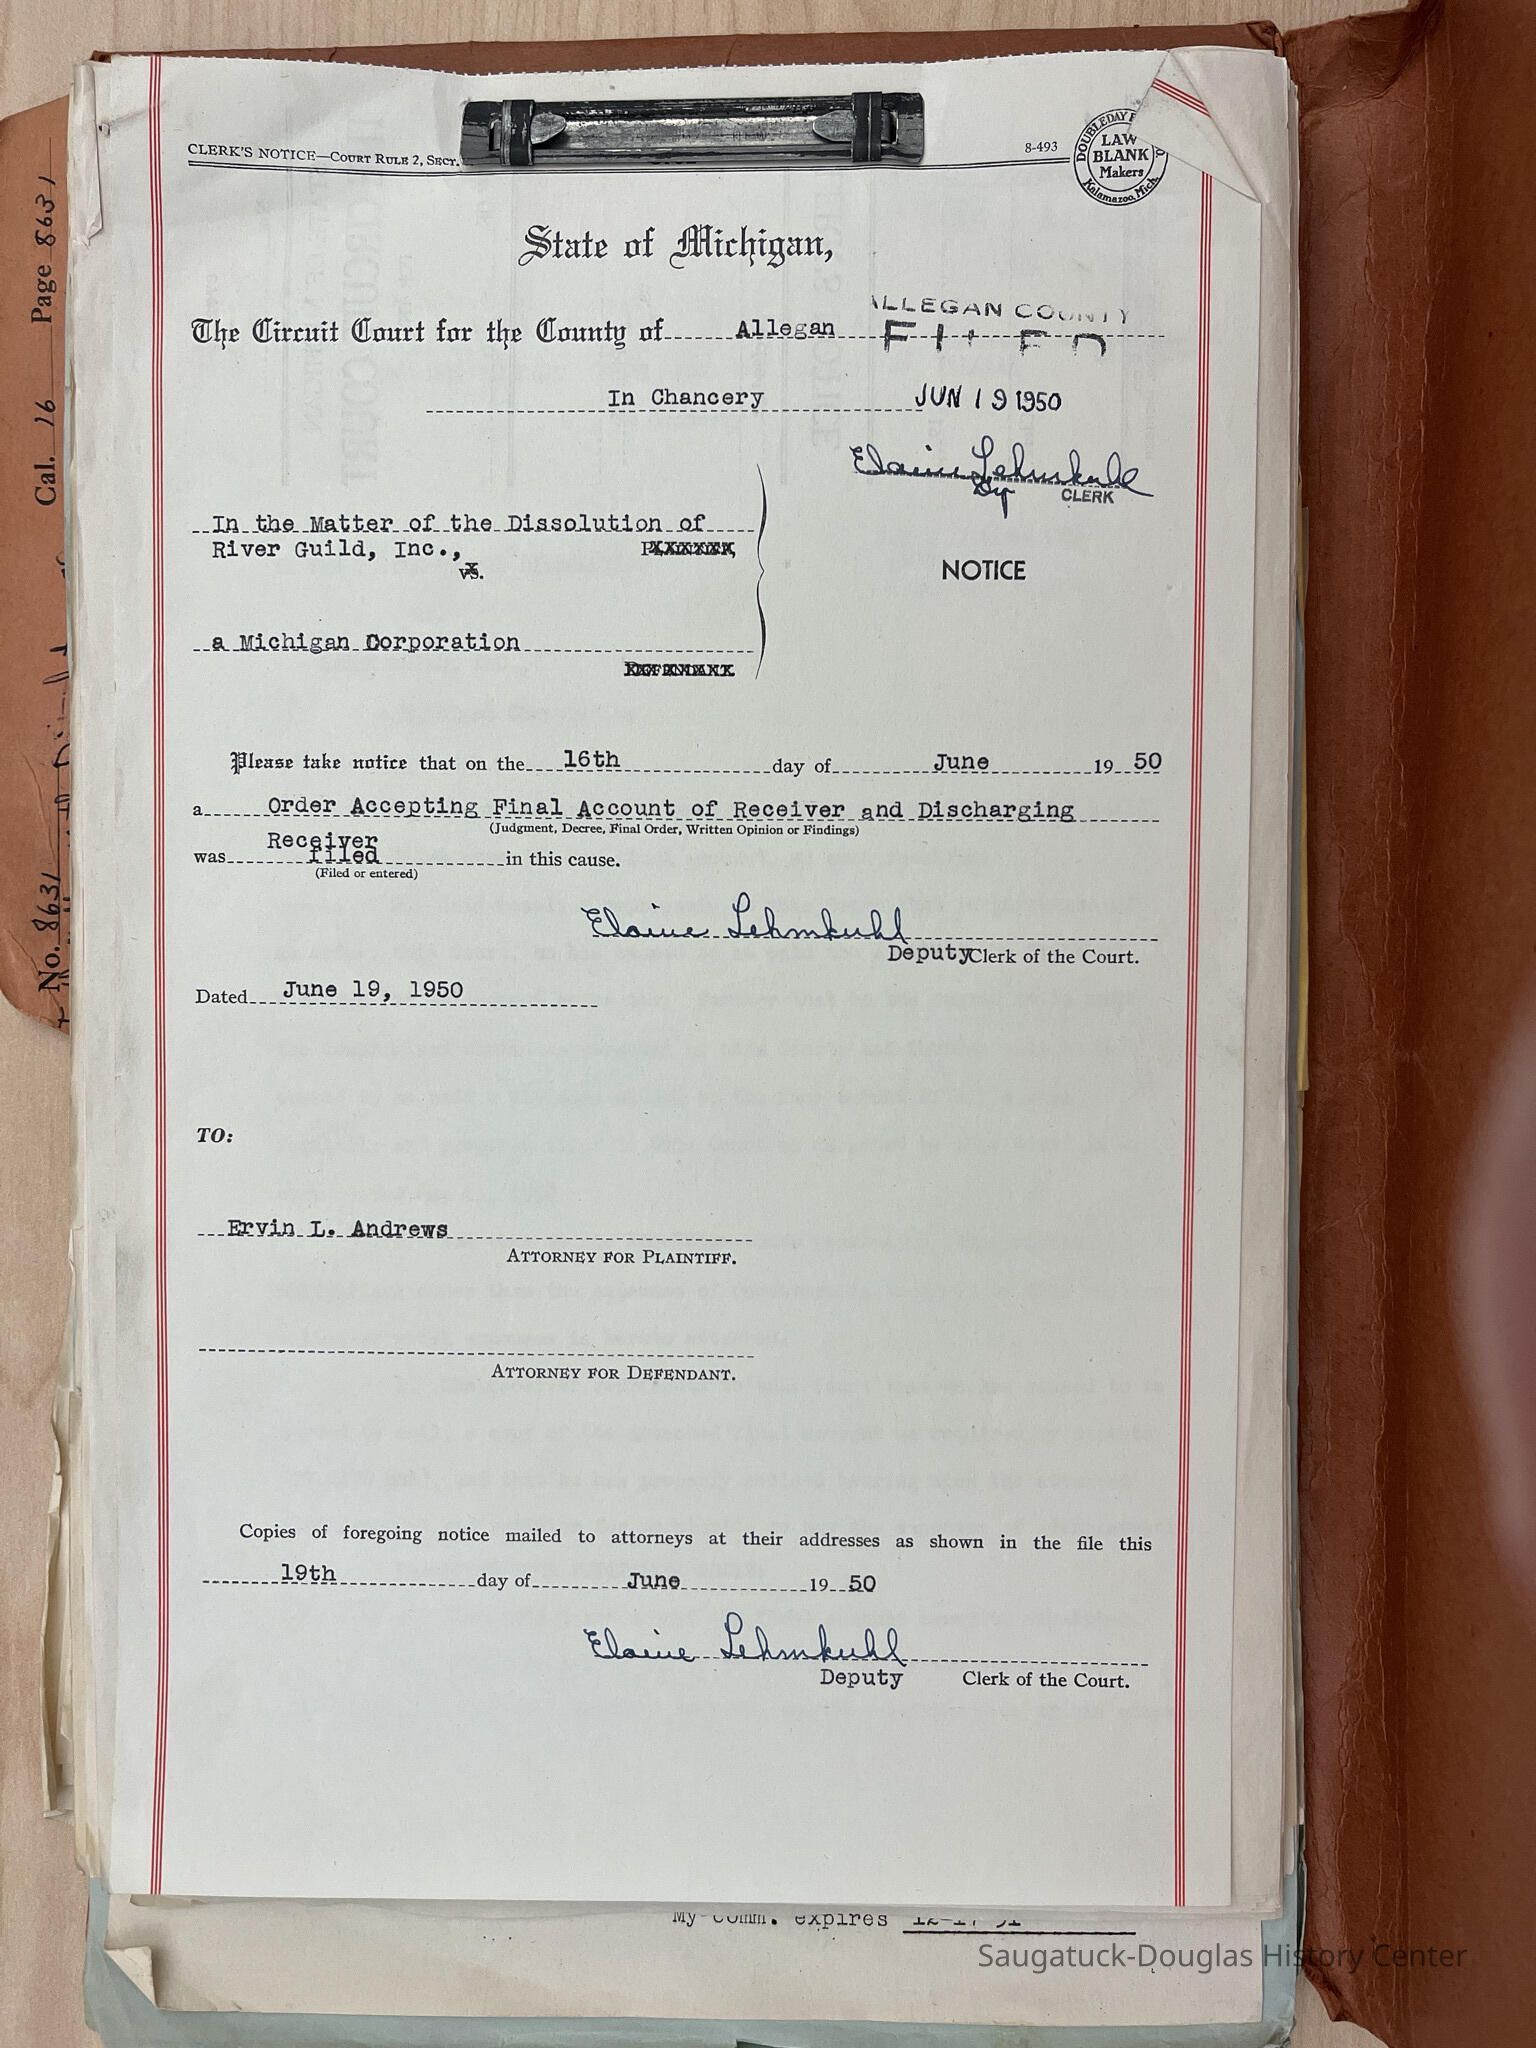 CLERK'S NOTICE—COURT RULE 2, SECT.
8-493
DOUBLEDAY
LAW
BLANK
Makers
Kalamazoo, Mich.
State of Michigan,
ALLEGAN COUNTY
The Circuit Court for the County of Allegan
FILED
In Chancery
JUN 19 1950
Elaine Lehmkuhl
Dy CLERK
In the Matter of the Dissolution of
River Guild, Inc., PLAINTIFF,
vs.
NOTICE
a Michigan Corporation
DEFENDANT.
Please take notice that on the 16th day of June 19 50
a Order Accepting Final Account of Receiver and Discharging
(Judgment, Decree, Final Order, Written Opinion or Findings)
Receiver
was filed in this cause.
(Filed or entered)
Elaine Lehmkuhl
Deputy Clerk of the Court.
Dated June 19, 1950
TO:
Ervin L. Andrews
ATTORNEY FOR PLAINTIFF.
ATTORNEY FOR DEFENDANT.
Copies of foregoing notice mailed to attorneys at their addresses as shown in the file this
19th day of June 19 50
Elaine Lehmkuhl
Deputy Clerk of the Court.
My Comm. expires 12-17-51
Saugatuck-Douglas History Center
No. 8631
Cal. 16 Page 8631